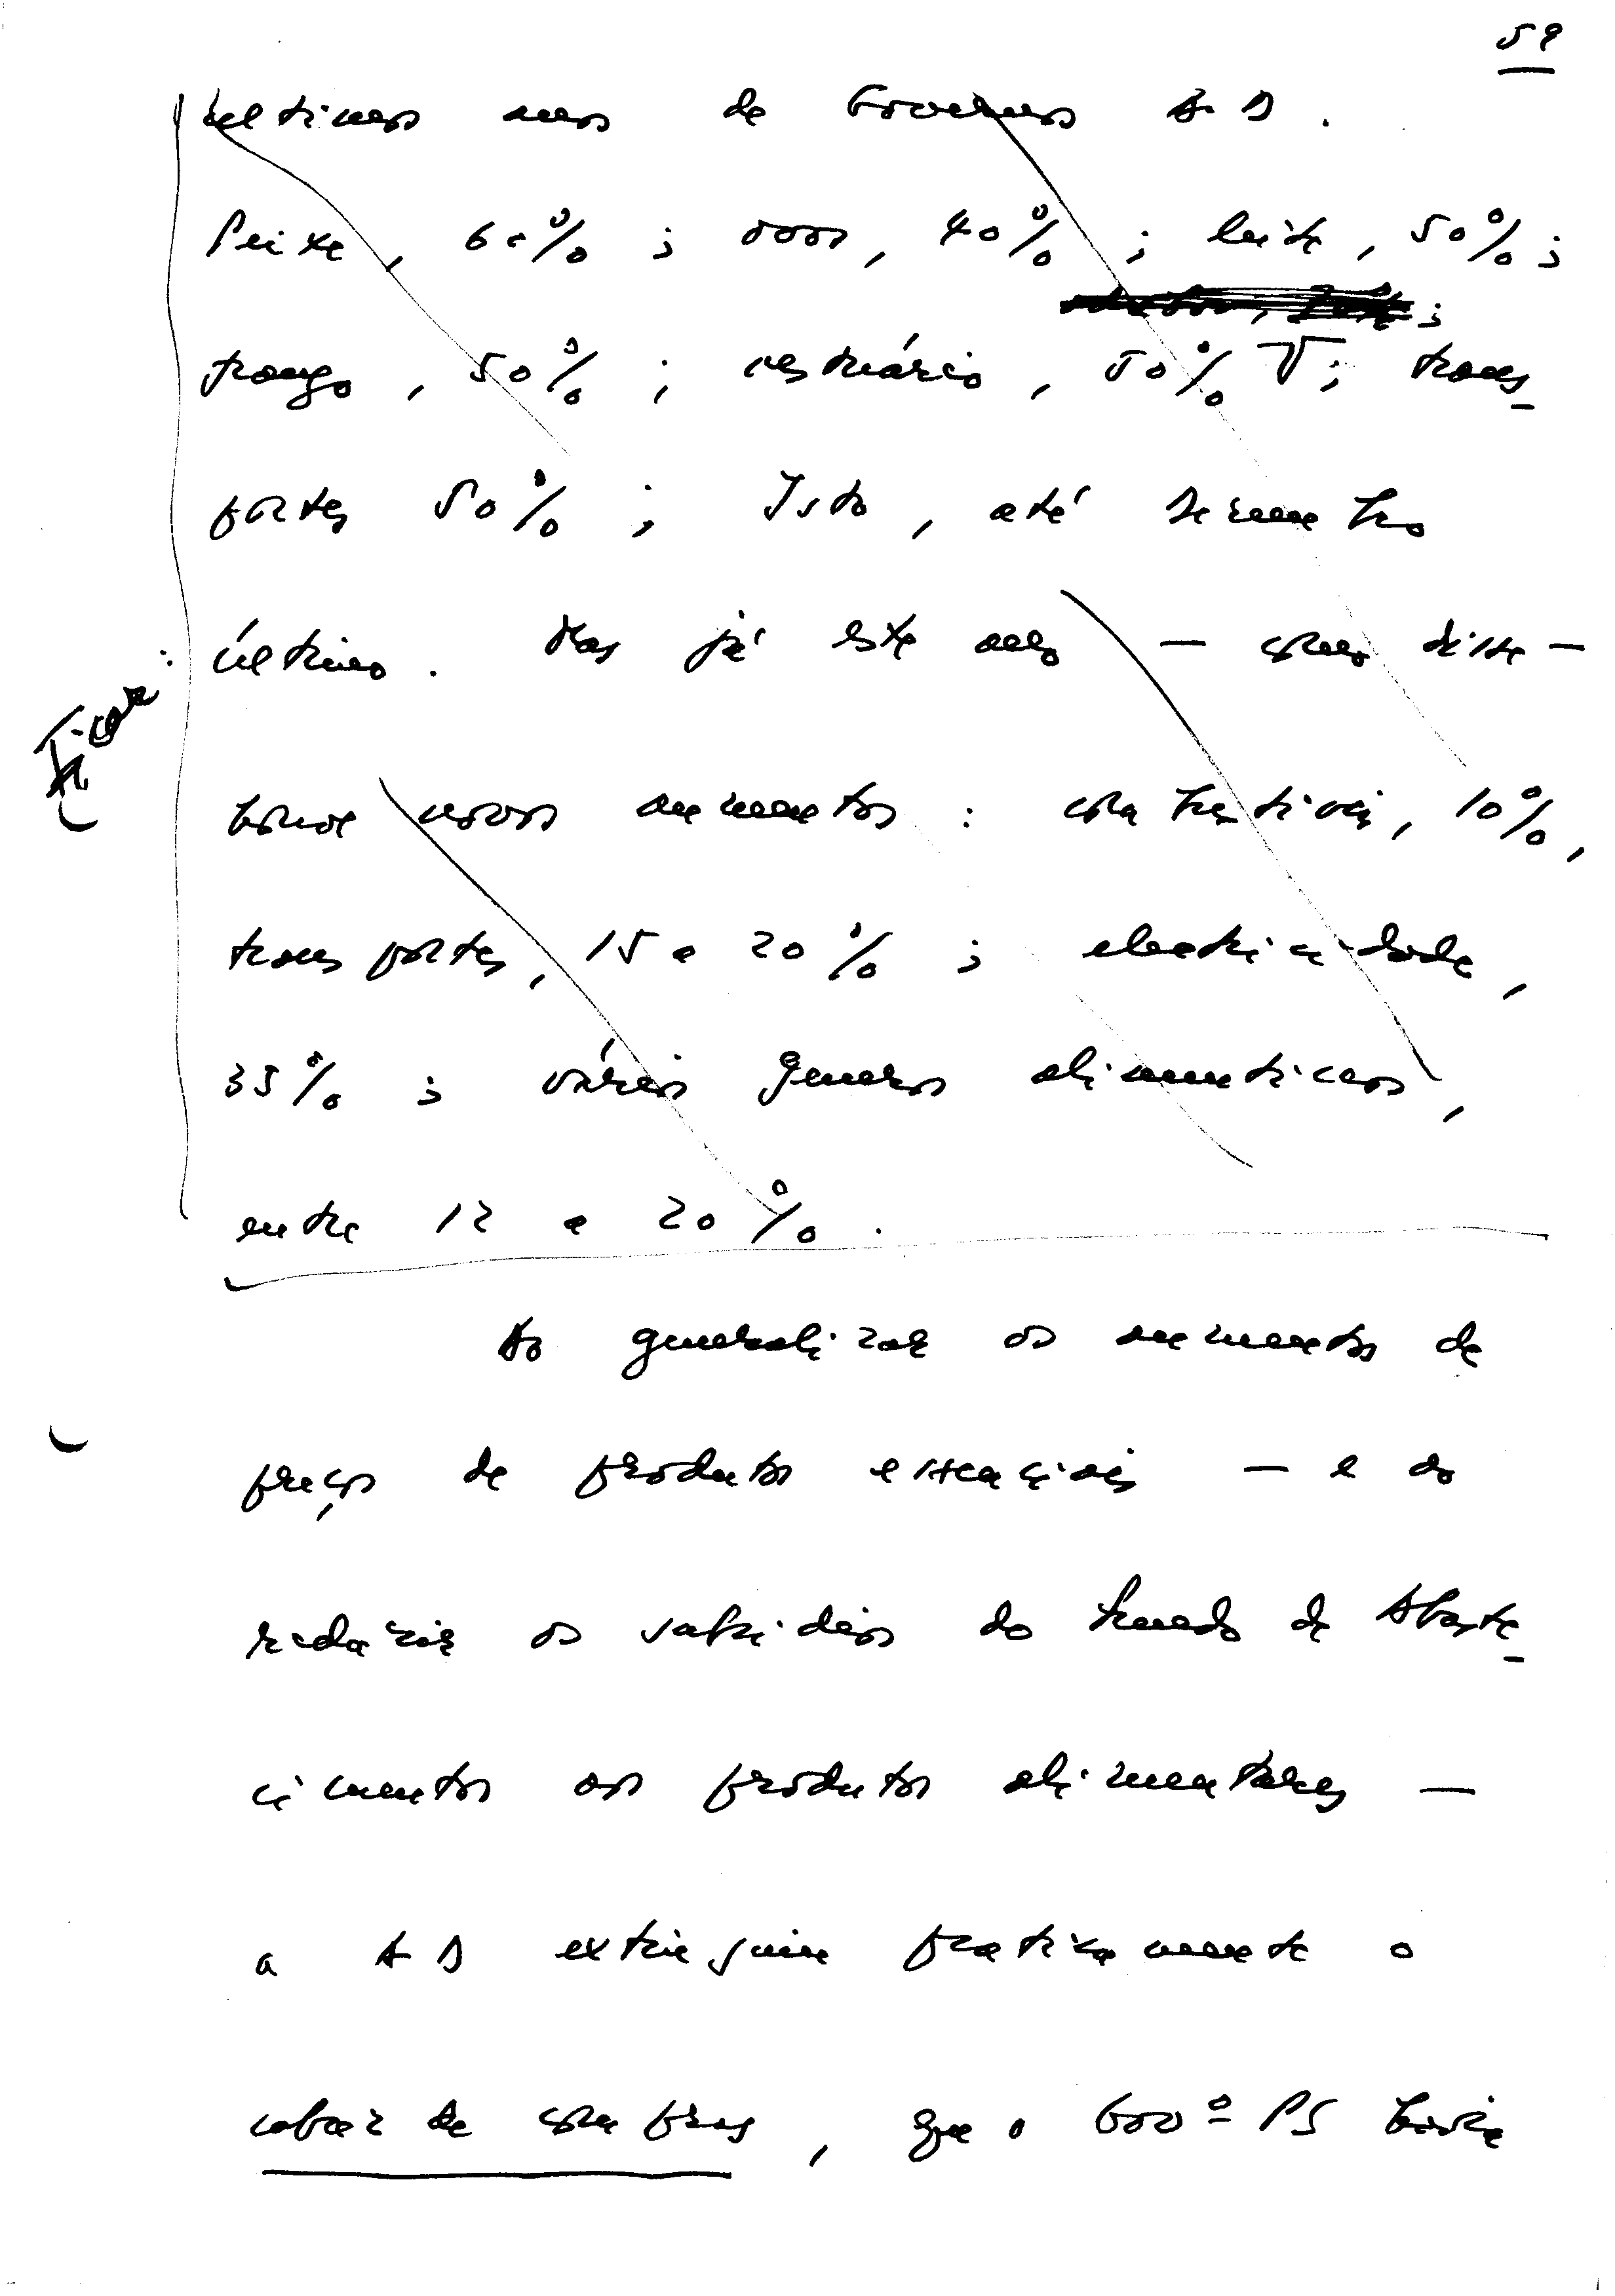 59
últimos anos de Governos AD.
Peixe, 60%; ovos, 40%; leite, 50%;
frango, 50%; vestuário, 50%; trans-
portes 50%; Isto, até Dezembro
último. Mas já este ano — como disse —
houve novos aumentos: combustíveis, 10%,
transportes, 15 a 20%; electricidade,
35%; vários géneros alimenticios,
entre 12 a 20%.
Ao generalizar os aumentos de
preços de produtos essenciais — e ao
reduzir os subsídios do Fundo de Abaste-
cimentos aos produtos alimentares —
a AD extinguiu praticamente o
cabaz de compras, que o Govº PS havia